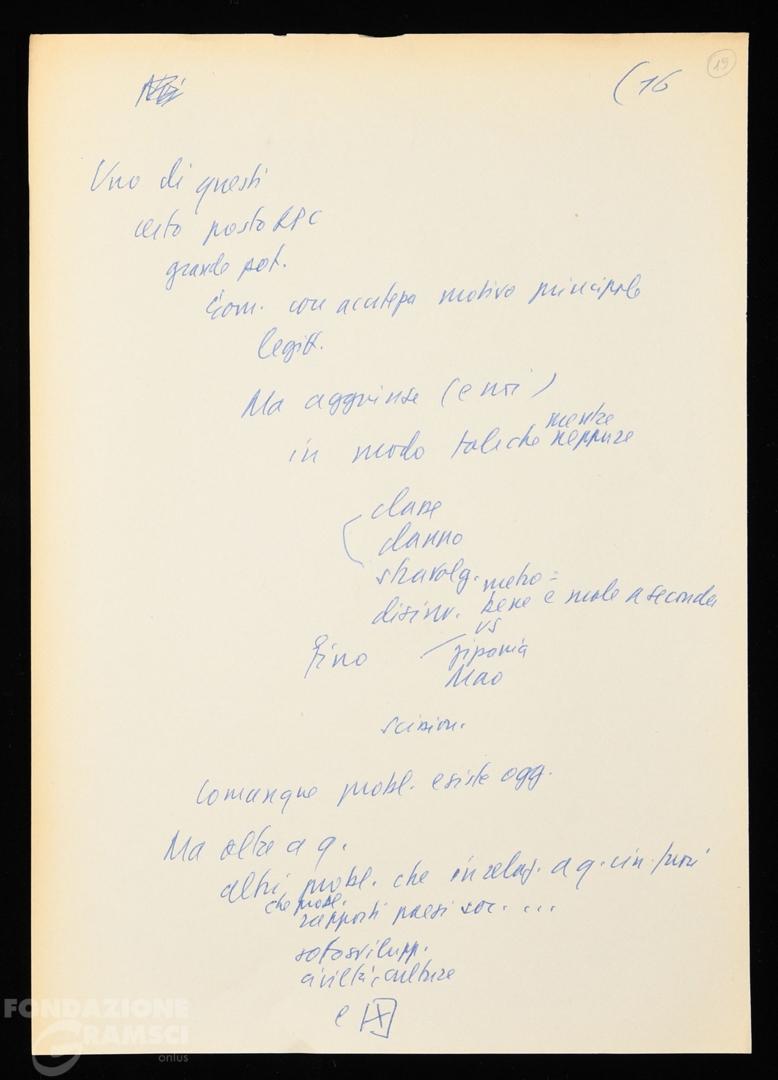 (16
19
Uno di questi
certo posto RPC
grande pot.
Com. con accutepa motivo principale
legitt.
Ma aggiunse (e noi)
mentre
in modo tale che neppure
classe
danno
stravolg. metro =
disinv. bene e male a seconda
vs
Fino
Mao
scission.
Comunque probl. esiste ogg.
Ma oltre a q.
altri probl. che in relaz. a q.
che poss.
rapporti paesi soc. ...
sottosvilupp.
civiltà, culture
e IX
FONDAZIONE
GRAMSCI
onlus